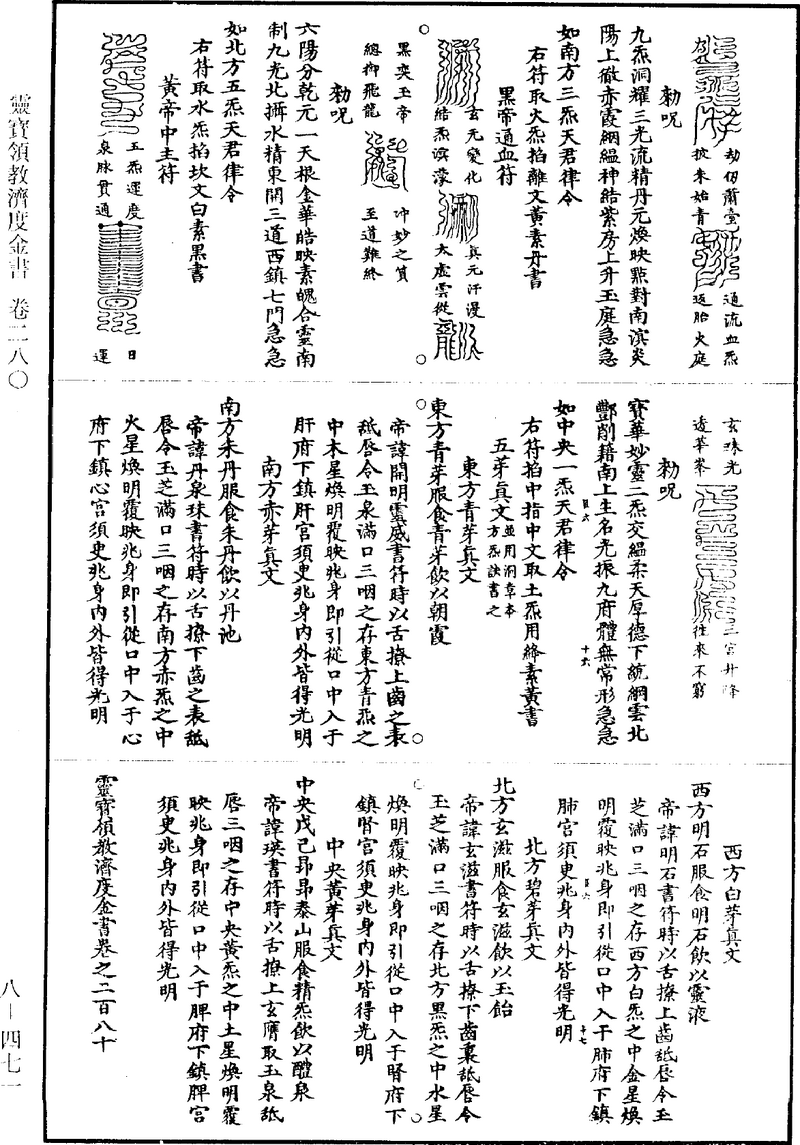 劫仞蕭臺
披朱始青
通流血炁
返胎火庭
勑呪
九炁洞耀三光流精丹元煥映點對南溟炎
陽上徹赤霞絪緼神結紫房上升玉庭急急
如南方三炁天君律令
右符取火炁掐離文黃素丹書
黑帝通血符
玄元變化
結炁溟濛
真元汗漫
太虛雲從
龍
黑奕玉帝
總御飛龍
冲妙之質
至道難終
勑呪
六陽分乾元一天根金華皓映素魄合靈南
制九光北攝水精東開三道西鎮七門急急
如北方五炁天君律令
右符取水炁掐坎文白素黑書
黃帝中主符
五炁運度
泉脉貫通
日
運
玄珠光
透華峯
三宮升降
往來不窮
勑呪
寶華妙靈二炁交緼柔天厚德下統綱雲北
酆削籍南上生名光振九府體無常形急急
如中央一炁天君律令
右符掐中指中文取土炁用絳素黃書
五芽真文並用洞章本
方炁訣書之
東方青芽真文
東方青芽服食青芽飲以朝霞
帝諱開明靈威書符時以舌撩上齒之表
舐唇令玉泉滿口三咽之存東方青炁之
中木星煥明覆映兆身即引從口中入于
肝府下鎮肝宮須臾兆身內外皆得光明
南方赤芽真文
南方朱丹服食朱丹飲以丹池
帝諱丹泉珠書符時以舌撩下齒之表舐
唇令玉芝滿口三咽之存南方赤炁之中
火星煥明覆映兆身即引從口中入于心
府下鎮心宮須臾兆身內外皆得光明
西方白芽真文
西方明石服食明石飲以靈液
帝諱明石書符時以舌撩上齒舐唇令玉
芝滿口三咽之存西方白炁之中金星煥
明覆映兆身即引從口中入于肺府下鎮
肺宮須臾兆身內外皆得光明
北方碧芽真文
北方玄滋服食玄滋飲以玉飴
帝諱玄滋書符時以舌撩下齒裏舐唇令
玉芝滿口三咽之存北方黑炁之中水星
煥明覆映兆身即引從口中入于腎府下
鎮腎宮須臾兆身內外皆得光明
中央黃芽真文
中央戊己昂昂泰山服食精炁飲以醴泉
帝諱瑛書符時以舌撩上玄膺取玉泉舐
唇三咽之存中央黃炁之中土星煥明覆
映兆身即引從口中入于脾府下鎮脾宮
須臾兆身內外皆得光明
靈寶領教濟度金書卷之二百八十
靈寶領教濟度金書 卷二八〇
八—四七一